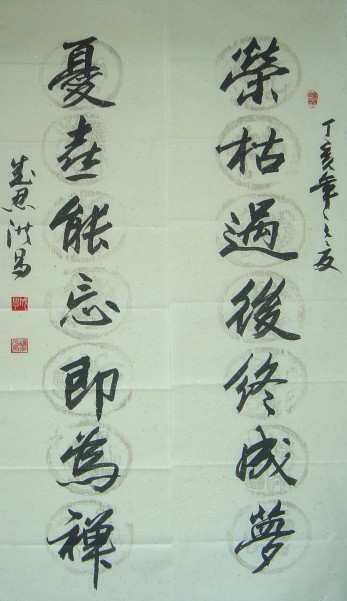 丁亥年之夏
榮枯過後終成夢
憂喜能忘即為禪
思洪書